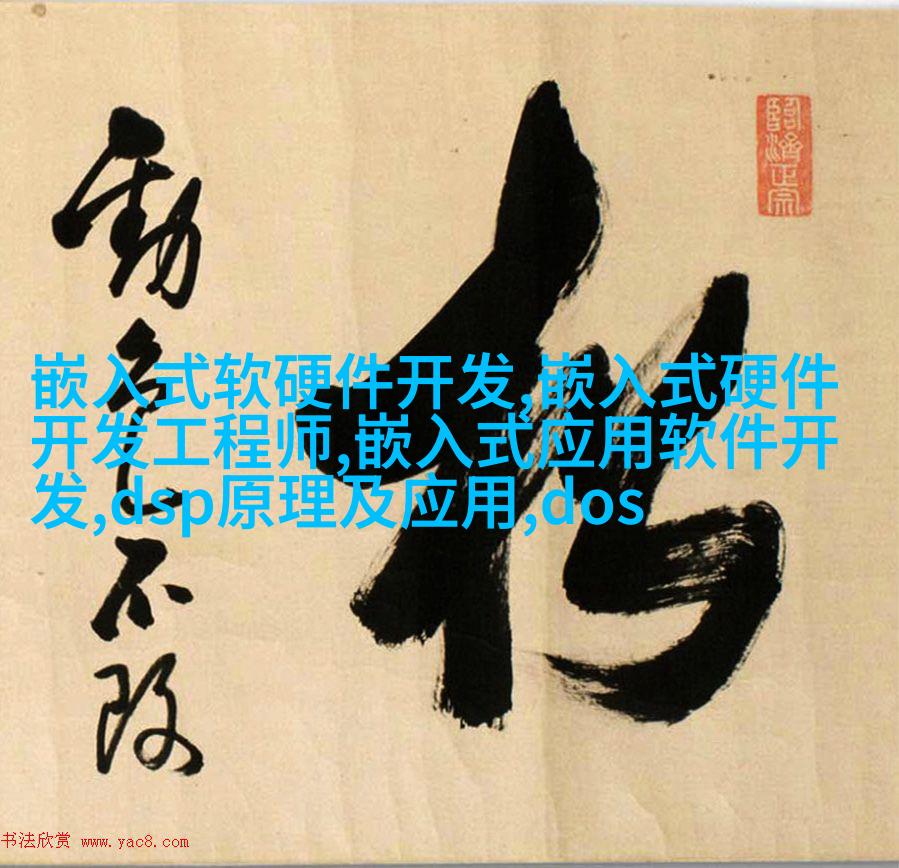 臨濟正宗
松
勁色不改
嵌入式软硬件开发,嵌入式硬件
开发工程师,嵌入式应用软件开
发,dsp原理及应用,dos
书法欣赏 www.yac8.com